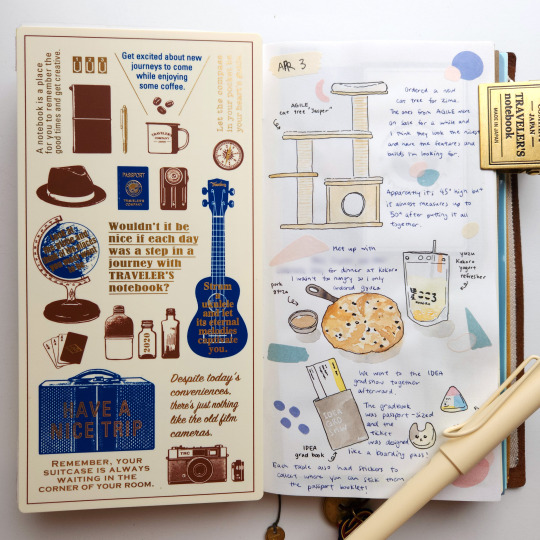 A notebook is a place
for you to remember the
good times and get creative.
Get excited about new
journeys to come
while enjoying
some coffee.
Let the compass
in your pocket be
your heart's
TRAVELER'S
COMPANY
PASSPORT
TRAVELER'S
COMPANY
Wouldn't it be
nice if each day
was a step in a
journey with
TRAVELER'S
notebook?
Strum
a
ukulele
and let
its eternal
melodies
captivate
you.
2020
HAVE A
NICE TRIP
Despite today's
conveniences,
there's just nothing
like the old film
cameras.
TRC
REMEMBER, YOUR
SUITCASE IS ALWAYS
WAITING IN THE
CORNER OF YOUR ROOM.
APR 3
AGILE
cat tree "Jasper"
Ordered a new
cat tree for Zima.
The ones from AGILE were
on sale for a while and
I think they look the nicest
and have the features and
build I'm looking for.
Apparently it's 45" high but
it almost measures up to
50" after putting it all
together.
Met up with
for dinner at Kokoro
I wasn't to hungry so I only
ordered gyoza
pork
gyoza
yuzu
Kokoro
yogurt
refresher
We went to the IDEA
gradshow together
afterward.
The gradbook
was passport-sized
and the
ticket
was designed
like a boarding pass!
IDEA
GRAD
SHOW
IDEA
grad book
Each table also had stickers to
collect where you can stick them
the passport booklet!
TRAVELER'S
notebook
MADE IN JAPAN
JAPAN